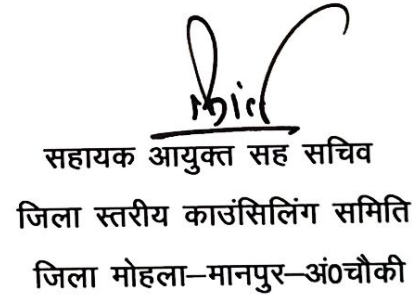 सहायक आयुक्त सह सचिव
जिला स्तरीय काउंसिलिंग समिति
जिला मोहला–मानपुर–अं0चौकी